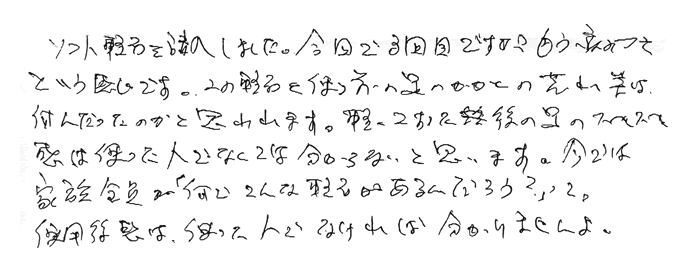 ソフト軽石を購入しました。今回で3回目ですが、もう病みつき
という感じです。この軽石を使う前の足のかかとの荒れ等は、
何んだったのかと思われます。軽くこすった後の足のスベスベ
感は使った人でなくては分からないと思います。今では
家族全員が「何でこんな軽石があるんだろう?」と。
使用後感は、使った人でなければ分かりませんよ。